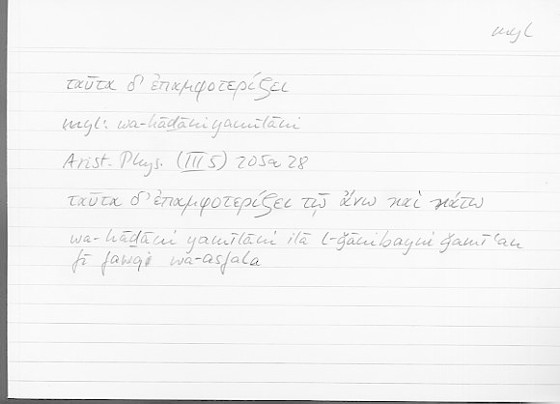 myl
ταῦτα δ' ἐπαμφοτερίζει
myl: wa-hāḏāni yamīlāni
Arist. Phys. (III 5) 205a28
ταῦτα δ' ἐπαμφοτερίζει τῷ ἄνω καὶ κάτω
wa-hāḏāni yamīlāni ilā l-ǧānibayni ǧamīʿan
fī fawqi wa-asfala